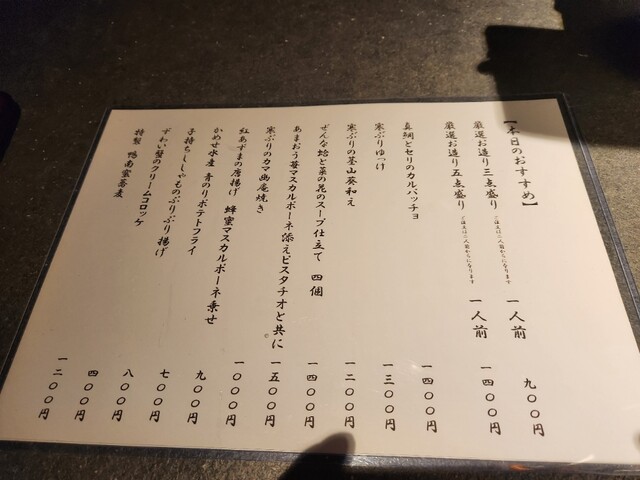 【本日のおすすめ】
厳選お造り三点盛り ご注文は二人前からになります 一人前 九〇〇円
厳選お造り五点盛り ご注文は二人前からになります 一人前 一四〇〇円
真鯛とセリのカルパッチョ 一四〇〇円
寒ぶりゆっけ 一三〇〇円
寒ぶりの茎山葵和え 一二〇〇円
ぜんな蛤と菜の花のスープ仕立て 四個 一四〇〇円
あまおう苺マスカルポーネ添えピスタチオと共に 一五〇〇円
寒ぶりのカマ幽庵焼き 一〇〇〇円
紅あずまの唐揚げ 蜂蜜マスカルポーネ乗せ 九〇〇円
かめせ水産 青のりポテトフライ 七〇〇円
子持ちししゃものぷりぷり揚げ 八〇〇円
ずわい蟹のクリームコロッケ 四〇〇円
特製 鴨南蛮蕎麦 一二〇〇円